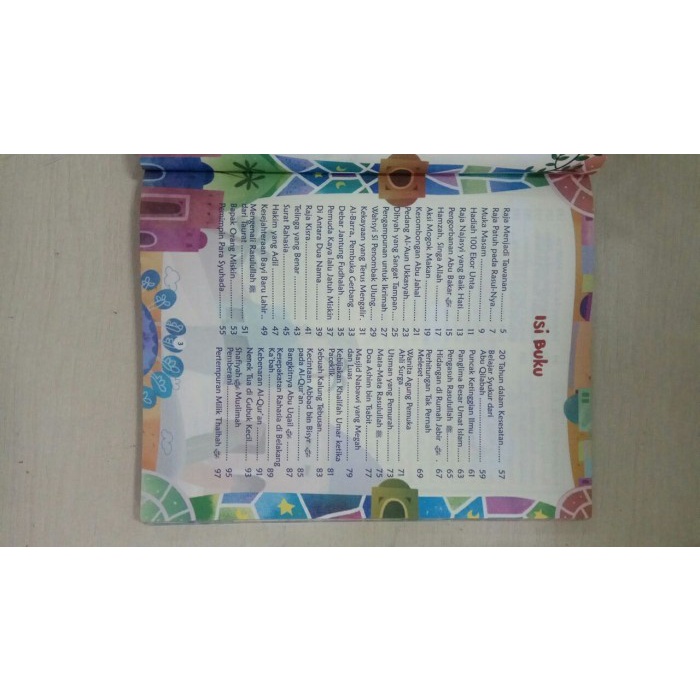 Isi Buku
Raja Menjadi Tawanan .......... 5
Raja Patuh pada Rasul-Nya .... 7
Muka Masam ......................... 9
Hadiah 100 Ekor Unta ............ 11
Raja Najasyi yang Baik Hati ..... 13
Pengorbanan Abu Bakar ..... 15
Hamzah, Singa Allah .............. 17
Aksi Mogok Makan ................ 19
Kesombongan Abu Jahal ........ 21
Pedang Al-'Aun Ukasyah ........ 23
Dihyah yang Sangat Tampan .... 25
Pengampunan untuk Ikrimah .... 27
Wahsyi Si Penombak Ulung ..... 29
Kekayaan yang Terus Mengalir . 31
Al-Barra, Pembuka Gerbang .... 33
Debar Jantung Fudhalah ........ 35
Pemuda Kaya lalu Jatuh Miskin 37
Di Antara Dua Nama .............. 39
Raja Kisra ............................ 41
Telinga yang Benar ................ 43
Surat Rahasia ....................... 45
Hakim yang Adil ..................... 47
Kesejahteraan Bayi Baru Lahir .. 49
Mengenali Rasulullah ﷺ
dari Taurat ........................... 51
Bapak Orang Miskin ............... 53
Pemimpin Para Syuhada ......... 55
20 Tahun dalam Kesesatan ....... 57
Belajar Syukur dari
Abu Qilabah ......................... 59
Puncak Ketinggian Ilmu .......... 61
Panglima Besar Umat Islam ..... 63
Pengaruh Rasulullah ﷺ ......... 65
Hidangan di Rumah Jabir .... 67
Perhitungan Tak Pernah
Meleset ................................ 69
Wanita Agung Pemuka
Ahli Surga ............................ 71
Utsman yang Pemurah ........... 73
Mata-Mata Rasulullah ﷺ ...... 75
Doa Ashim bin Tsabit ............. 77
Masjid Nabawi yang Megah
dan Luas .............................. 79
Kebijakan Khalifah Umar ketika
Paceklik ............................... 81
Sebuah Kalung Tebusan .......... 83
Kecintaan Abbad bin Bisyr
pada Al-Qur'an ..................... 85
Bangkitnya Abu Uqail ........ 87
Kesepakatan Rahasia di Belakang
Ka'bah ................................ 89
Kebenaran Al-Qur'an ............. 91
Nenek Tua di Gubuk Kecil ....... 93
Shafiyah Muslimah
Pemberani ............................ 95
Pertempuran Milik Thalhah 97
3